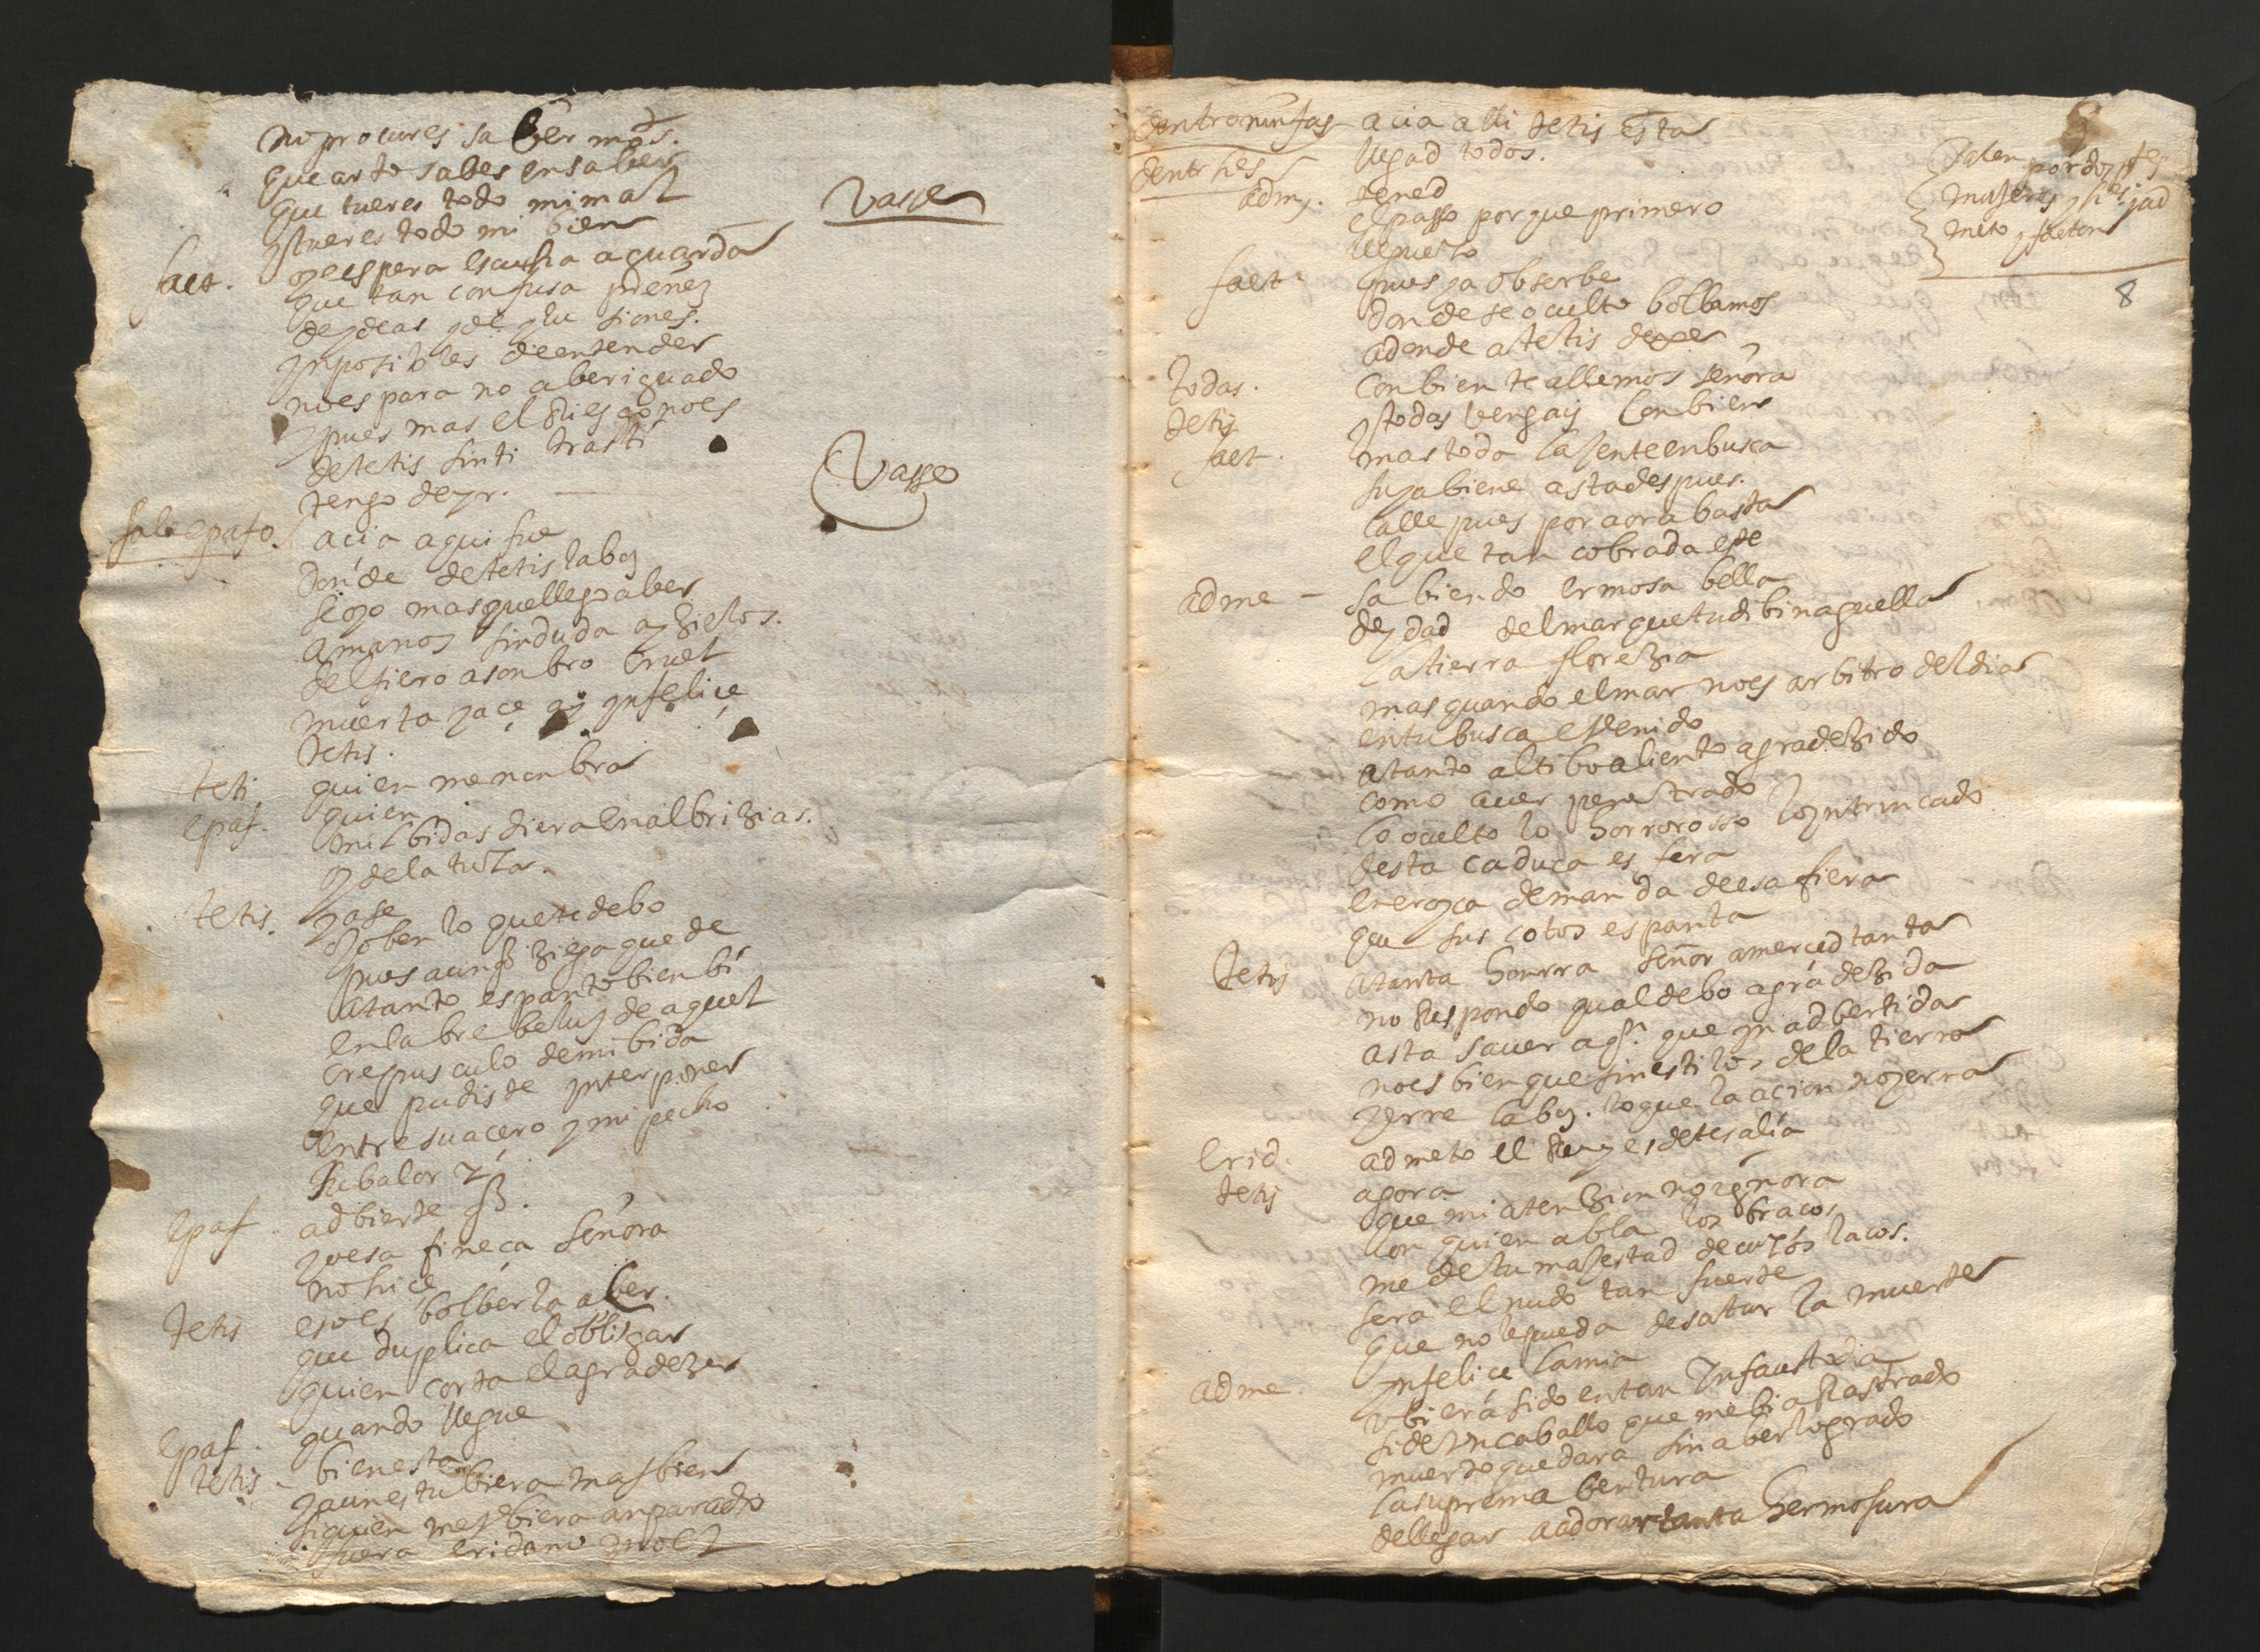 no procures saber mas.
que arto sabes en saber
que tueres todo mimal
ytueres todo mi bien — vasse
faet. oye espera escucha aguarda
que tan confusa preñez
deydeas y de ylu siones.
ynposibles deentender
noes para no aberiguado
ypues mas el Riesgo noes
detetis sinti trasti
tengo deyr. — Vasse
sale epafo. acia aqui fue
donde detetis laboz
seoyo mas quellego aber
amanos sinduda ay zielos.
delfiero asonbro cruel
muerta yaçe ay ynfeliçe
tetis.
teti quien me nonbra
epaf. quien
mil bidas diera en albrizias.
y dela tuya.
tetis. yase
o joben lo quetedebo
pues aunq ziega quede
atanto espanto bien bi
enla bre beluz de aquel
crepusculo demibida
que pudiste ynterponer
entre suacero y mi pecho
tubalor
epaf. adbierte q.
yoesa fineça señora
nohiçe
tetis esoes bolberla aber.
que duplica el obligar
quien corta elagradezer
quando llegue
epaf. bienesta
tetis yaunestubiera mas bien
siquien meubiera anparado
fuera eridano ynoel
dentro ninfas acia alli tetis esta
llegad todos.
adm. tened
el passo porque primero
llegueyo
Salen por dos ptes
mujeres y
meto y faeton
8
faet. pues ya obserbe
donde seoculto bolbamos
adonde atetis dexe
todas. conbien te allemos señora
tetis ytodas vengais conbien
faet. mas toda lajente enbusca
suya biene asta despues.
calle pues por aora basta
elque tan cobrada este
adme — sabiendo ermosa bella
deydad delmar quetudibinaguella
latierra florezia
mas quando elmar noes arbitro deldia
entubusca evenido
atanto altibo aliento agradezido
como aver penetrado
lo oculto lo horrorosso loyntrincado
desta caduca es fera
eneroyca demanda deesa fiera
que sus cotos espanta
tetis atanta honrra señor amerced tanta
no Respondo qual debo agradezida
asta saver aqn. que ynadbertida
noes bien que sinestilos dela tierra
yerre laboz. loque la acion noyerra
erid. admeto el Rey es detesalia
tetis agora
que mi atenzion noygnora
con quien abla los braços
me de tu majestad decuyos laços.
sera el nudo tan fuerte
que nolepueda desatar la muerte
adme. ynfeliçe lamia
ubiera sido entan ynfausto dia
side un caballo que mebia Rastrado
muerto quedara sin aber logrado
lasuprema bentura
dellegar aadorar tanta hermosura